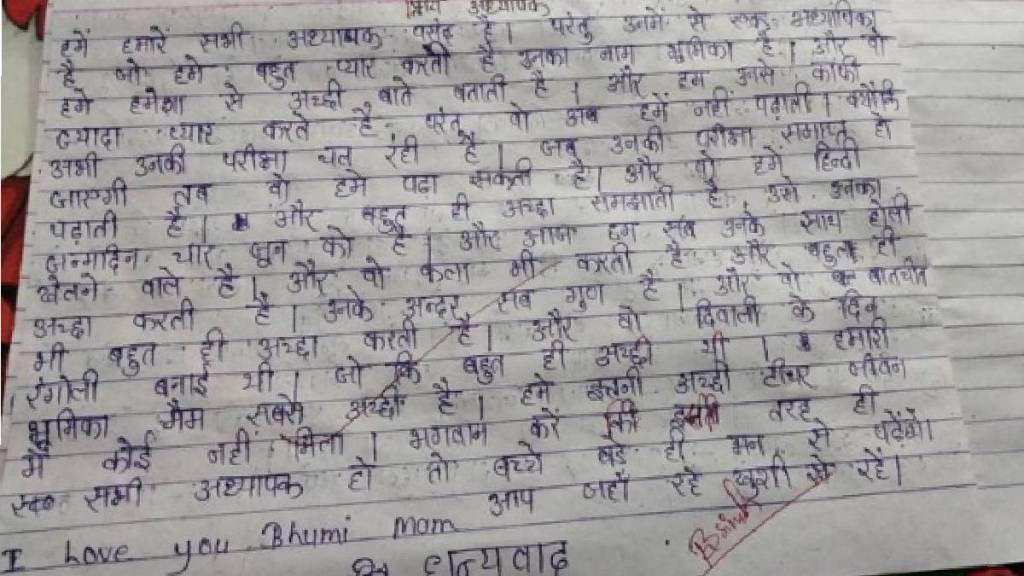 प्रिय अध्यापक
हमें हमारें सभी अध्यापक पसंद है। परंतु उनमें से एक अध्यापिका
है जो हमे बहुत प्यार करती है उनका नाम भूमिका है। और वो
हमे हमेशा से अच्छी बाते बताती है। और हम उनसे काफी
ज्यादा प्यार करते है परंतु वो अब हमें नहीं पढ़ाती। क्योंकि
अभी उनकी परीक्षा चल रही है। जब उनकी परीक्षा समाप्त हो
जाएगी तब वो हमे पढा सकती है। और वो हमें हिन्दी
पढ़ाती है। और बहुत ही अच्छा समझाती है उनका
जन्मदिन चार जून को है। और आज हम सब उनके साथ होली
खेलने वाले है। और वो कला भी करती है और बहुत ही
अच्छा करती है। उनके अन्दर सब गुण है। और वो बातचीत
भी बहुत ही अच्छा करती है। और वो दिवाली के दिन
रंगोली बनाई थी। जो कि बहुत ही अच्छी थी। हमारी
भूमिका मैम सबसे अच्छी है। हमे इतनी अच्छी टीचर जीवन
में कोई नहीं मिला। भगवान करें कि इसी तरह ही
सभी अध्यापक हो तो बच्चे बड़े ही मन से पढ़ेंगे।
आप जहाँ रहे खुशी से रहें।
I Love you Bhumi Mam
धन्यवाद